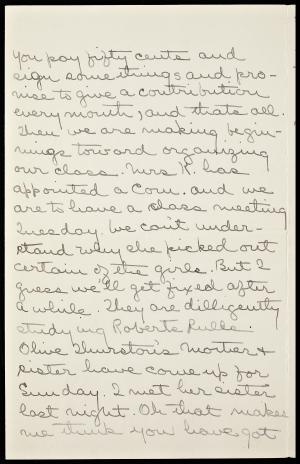 You pay fifty cents and
sign some things and pro-
mise to give a contribution
every month, and thats all.
Then we are making begin-
nings toward organizing
our class. Mrs R. has
appointed a Com. and we
are to have a class meeting
Tuesday. We can't under-
stand why she picked out
certain of the girls. But I
guess we'll get fixed after
a while. They are dilligently
studying Roberts Rules.
Olive Thurston's Mother &
sister have come up for
Sunday. I met her sister
last night. Oh that makes
me think you have got